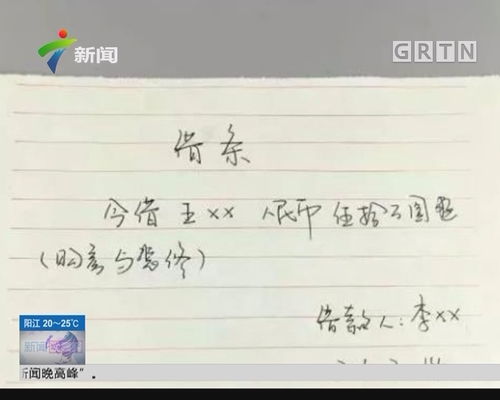 新闻
GRTN
借条
今借王×× 人民币伍拾万圆整
(购房与装修)
借款人:李××
阳江 20~25℃
新闻
闻晚高峰”。